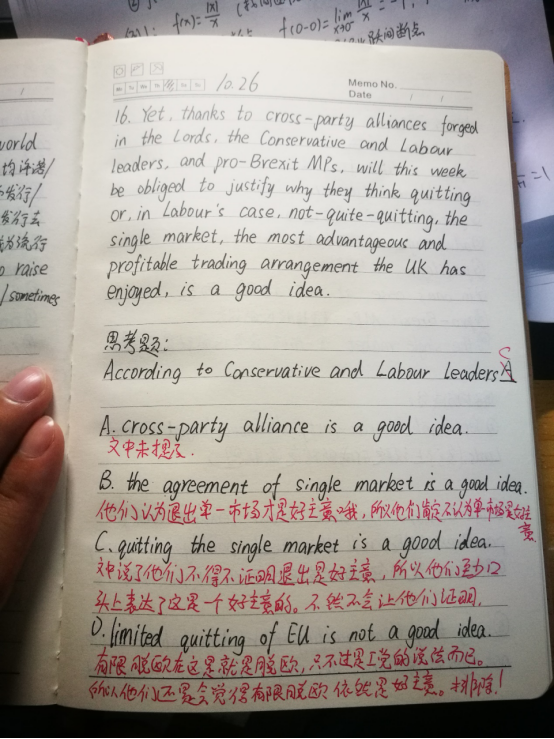 f(x)=|x|/x
f(0-0)=lim |x|/x = -1
跳间断点
=1
world
发行/
发行去
raise
/sometimes
10.26
Memo No.
Mo Tu We Th Fr Sa Su
Date / /
16. Yet, thanks to cross-party alliances forged
in the Lords, the Conservative and Labour
leaders, and pro-Brexit MPs, will this week
be obliged to justify why they think quitting
or, in Labour's case, not-quite-quitting, the
single market, the most advantageous and
profitable trading arrangement the UK has
enjoyed, is a good idea.
思考题:
According to Conservative and Labour leaders A C
A. cross-party alliance is a good idea.
文中未提及.
B. the agreement of single market is a good idea.
他们认为退出单一市场才是好主意哦,所以他们肯定不认为单市场是好主
意.
C. quitting the single market is a good idea.
文中说了他们不得不证明退出是好主意,所以他们至少口
头上表达了这是一个好主意的。不然不会让他们证明.
D. limited quitting of EU is not a good idea.
有限脱欧在这里就是脱欧,只不过是工党的说法而已。
所以他们还是会觉得有限脱欧依然是好主意。排除!